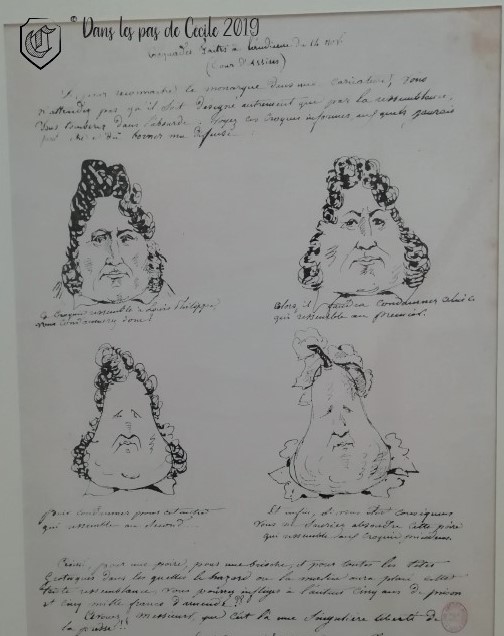 © Dans les pas de Cecile 2019
C
croquades faites à l'audience du 14 Nov.
(Cour d'Assises)
Si, pour reconnaître le monarque dans une caricature, vous
n'attendez pas qu'il soit désigné autrement que par la ressemblance,
Vous tomberez dans l'absurde. Voyez ces croquis informes, aux quels j'aurais
peut-être dû borner ma défense
Ce croquis ressemble à Louis Philippe,
vous condamnerez donc?
Alors il faudra condamner celui-ci
qui ressemble au premier.
Puis condamner pour cet autre
qui ressemble au second
Et enfin, si vous êtes conséquens
Vous ne sauriez absoudre cette poire
qui ressemble aux croquis précédens.
pour une poire, pour une brioche, et pour toutes les têtes
grotesques dans les quelles le hazard ou la malice aura placé cette
triste ressemblance, vous pourrez infliger à l'auteur cinq ans de prison
et cinq mille francs d'amende??
Avouez, Messieurs, que c'est là une singulière liberté de
la presse!!